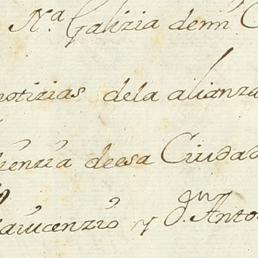 Na Galizia demi C
notizias dela alianza
enzia deesa Ciudad
auicenzio y Dn Anto